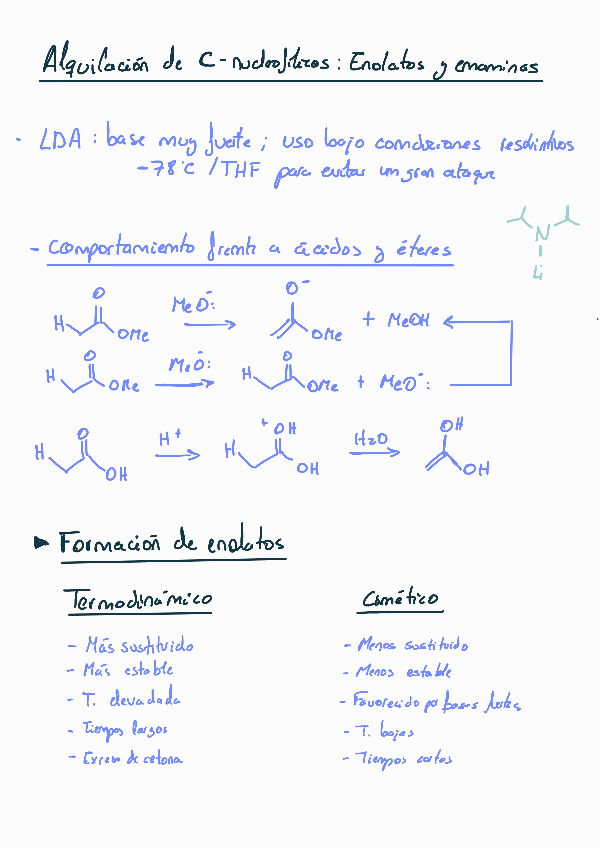 Alquilación de C-nucleofílicos: Enolatos y enaminas
- LDA: base muy fuerte; uso bajo condiciones restrintivas
-78°C / THF para evitar un gran ataque
N
Li
- Comportamiento frente a ácidos y éteres
H O OMe MeO⁻: O⁻ OMe + MeOH
H O OMe MeO⁻: H O OMe + MeO⁻:
H O OH H⁺ H ⁺OH OH H₂O OH OH
► Formación de enolatos
Termodinámico
- Más sustituido
- Más estable
- T. elevadada
- Tiempos largos
- Exceso de cetona
Cinético
- Menos sustituido
- Menos estable
- Favorecido por bases fuertes
- T. bajas
- Tiempos cortos